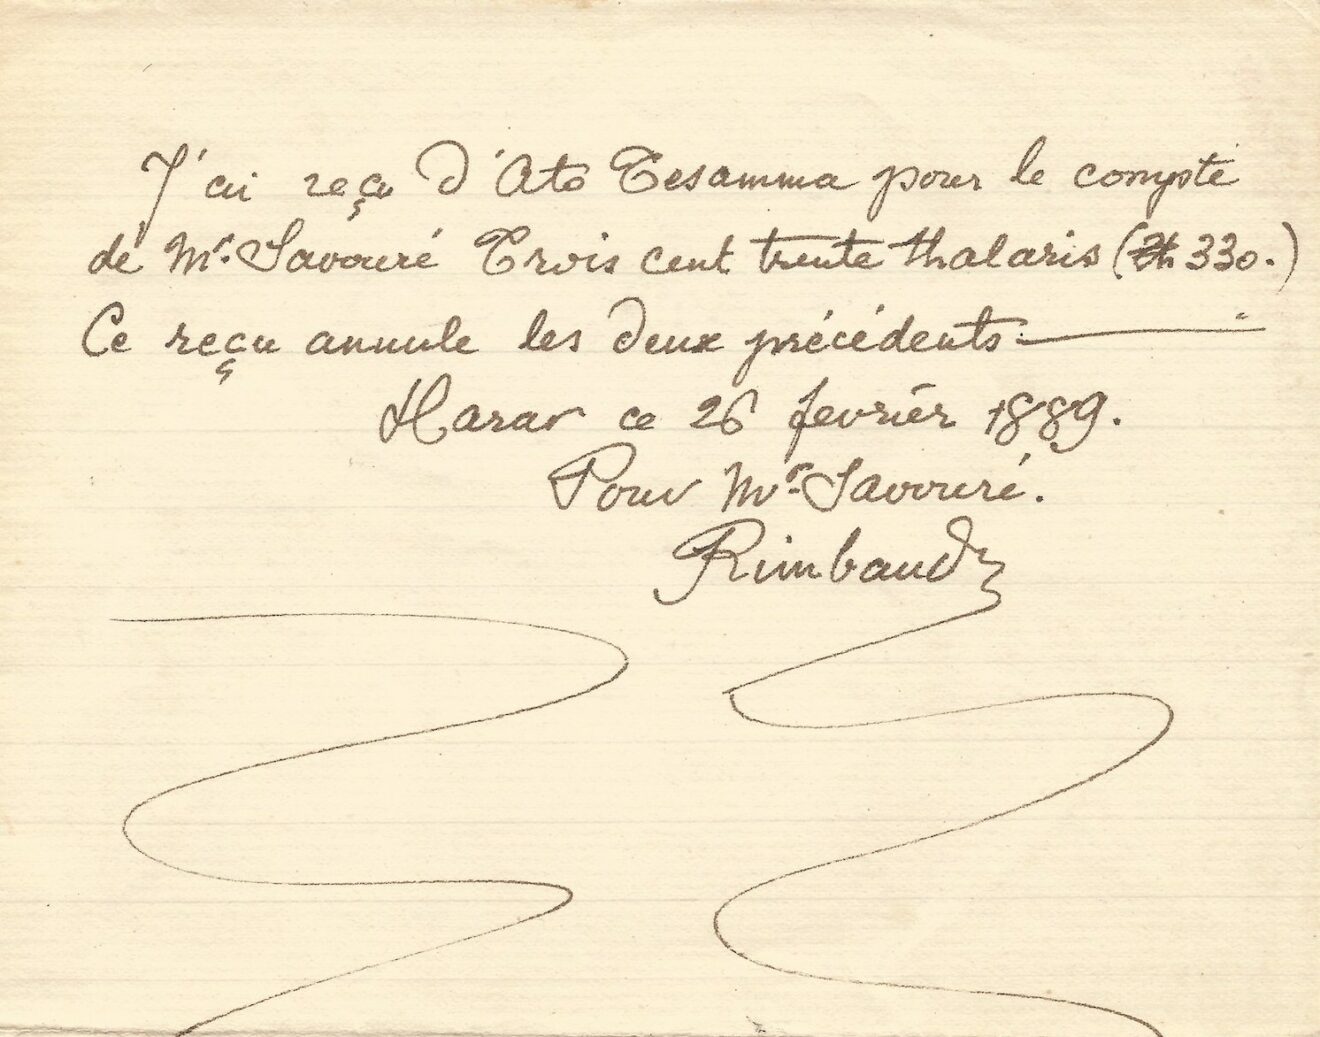 J'ai reçu d'Ato Tesamma pour le compte
de Mr. Savouré Trois cent trente thalaris (Th 330.)
Ce reçu annule les deux précédents.
Harar ce 26 février 1889.
Pour Mr. Savouré.
Rimbaud